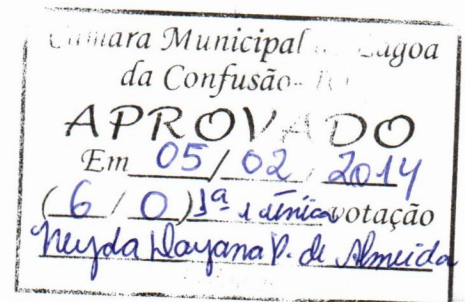 Câmara Municipal de Lagoa
da Confusão - TO
APROVADO
Em 05/02/2014
(6/0) 1ª e única votação
Neyda Dayana P. de Almeida